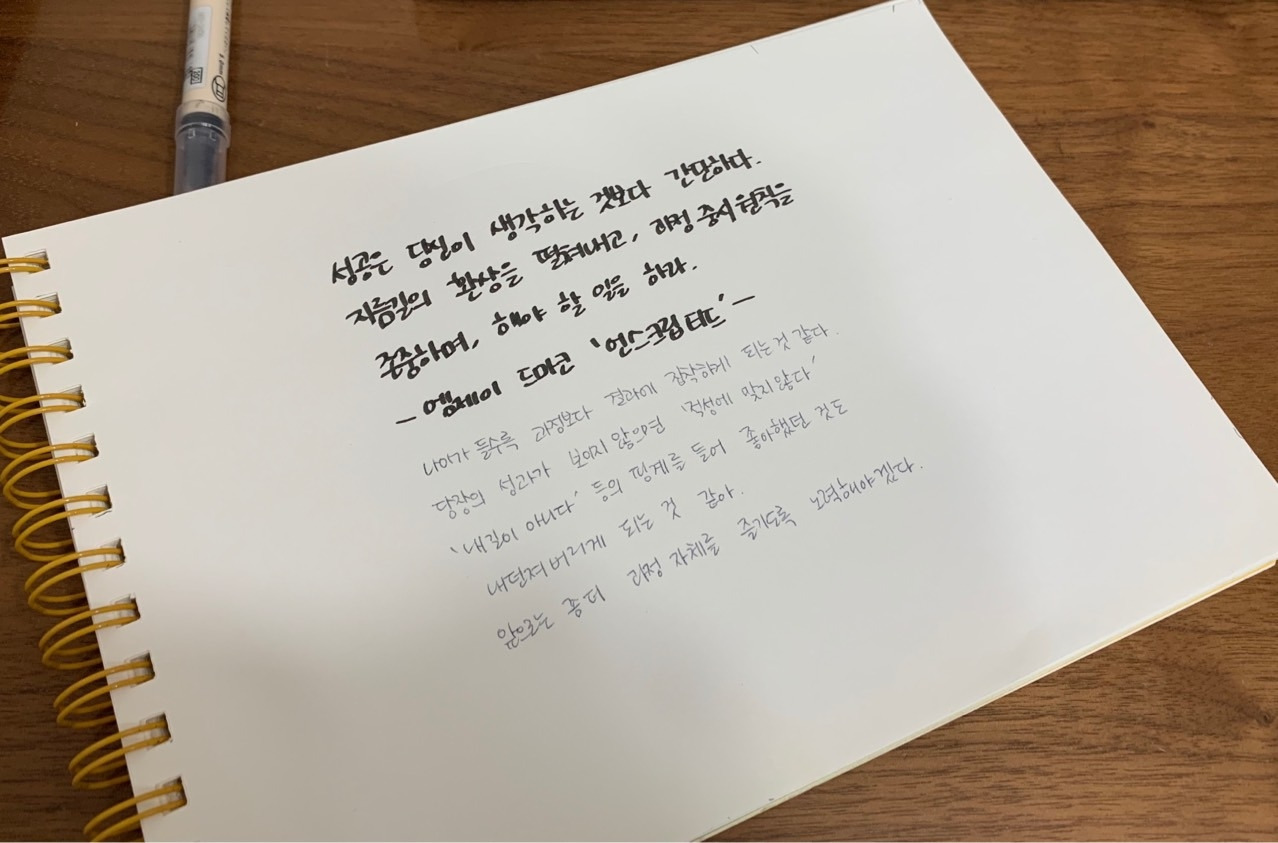 성공은 당신이 생각하는 것보다 간단하다.
지름길의 환상을 떨쳐내고, 과정 중시 원칙을
존중하며, 해야 할 일을 하라.
- 엠제이 드마코 '언스크립티드' -
나이가 들수록 과정보다 결과에 집착하게 되는 것 같다.
당장의 성과가 보이지 않으면 '적성에 맞지 않다'
'내 길이 아니다' 등의 핑계를 들어 좋아했던 것도
내던져버리게 되는 것 같아.
앞으로는 좀 더 과정 자체를 즐기도록 노력해야겠다.